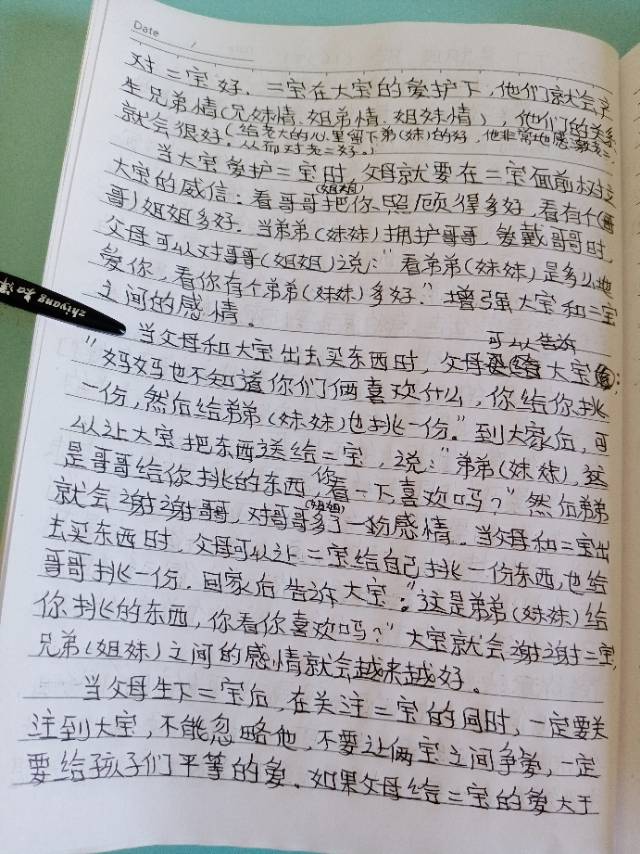 Date
对二宝好，二宝在大宝的爱护下，他们就会产
生兄弟情（兄妹情、姐弟情、姐妹情），他们的关系
就会很好。（给老大的心里留下弟（妹）的好，他非常地感
从而对老二好。）
当大宝爱护二宝时，父母就要在二宝面前树立
大宝的威信：看哥哥（姐姐）把你照顾得多好，看有个（哥
哥）姐姐多好。当弟弟（妹妹）拥护哥哥，爱戴哥哥时，
父母可以对哥哥（姐姐）说：“看弟弟（妹妹）是多么地
爱你，看你有个弟弟（妹妹）多好。”增强大宝和二宝
之间的感情。
zhiyang
当父母和大宝出去买东西时，父母可以告诉大宝：
“妈妈也不知道你们俩喜欢什么，你给你挑
一份，然后给弟弟（妹妹）也挑一份。”到大家后，可
以让大宝把东西送给二宝，说：“弟弟（妹妹），这
是哥哥给你挑的东西，你看一下喜欢吗？”然后弟弟
就会谢谢哥哥，对哥哥（姐姐）多了一份感情。当父母和二宝出
去买东西时，父母可以让二宝给自己挑一份东西，也给
哥哥挑一份。回家后告诉大宝：“这是弟弟（妹妹）给
你挑的东西，你看你喜欢吗？”大宝就会谢谢二宝，
兄弟（姐妹）之间的感情就会越来越好。
当父母生下二宝后，在关注二宝的同时，一定要关
注到大宝，不能忽略他，不要让俩宝之间争爱，一定
要给孩子们平等的爱。如果父母给二宝的爱大于